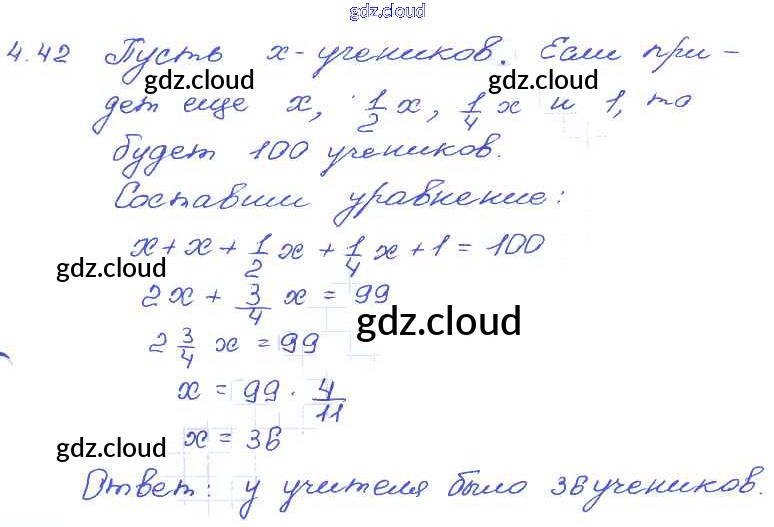 gdz.cloud
4.42 Пусть x - учеников. Если при-
gdz.cloud gdz.cloud
дет еще x, 1/2 x, 1/4 x и 1, то
будет 100 учеников.
Составим уравнение:
x + x + 1/2 x + 1/4 x + 1 = 100
gdz.cloud
2x + 3/4 x = 99
gdz.cloud
2 3/4 x = 99
x = 99 · 4/11
x = 36
gdz.cloud gdz.cloud
Ответ: у учителя было 36 учеников.